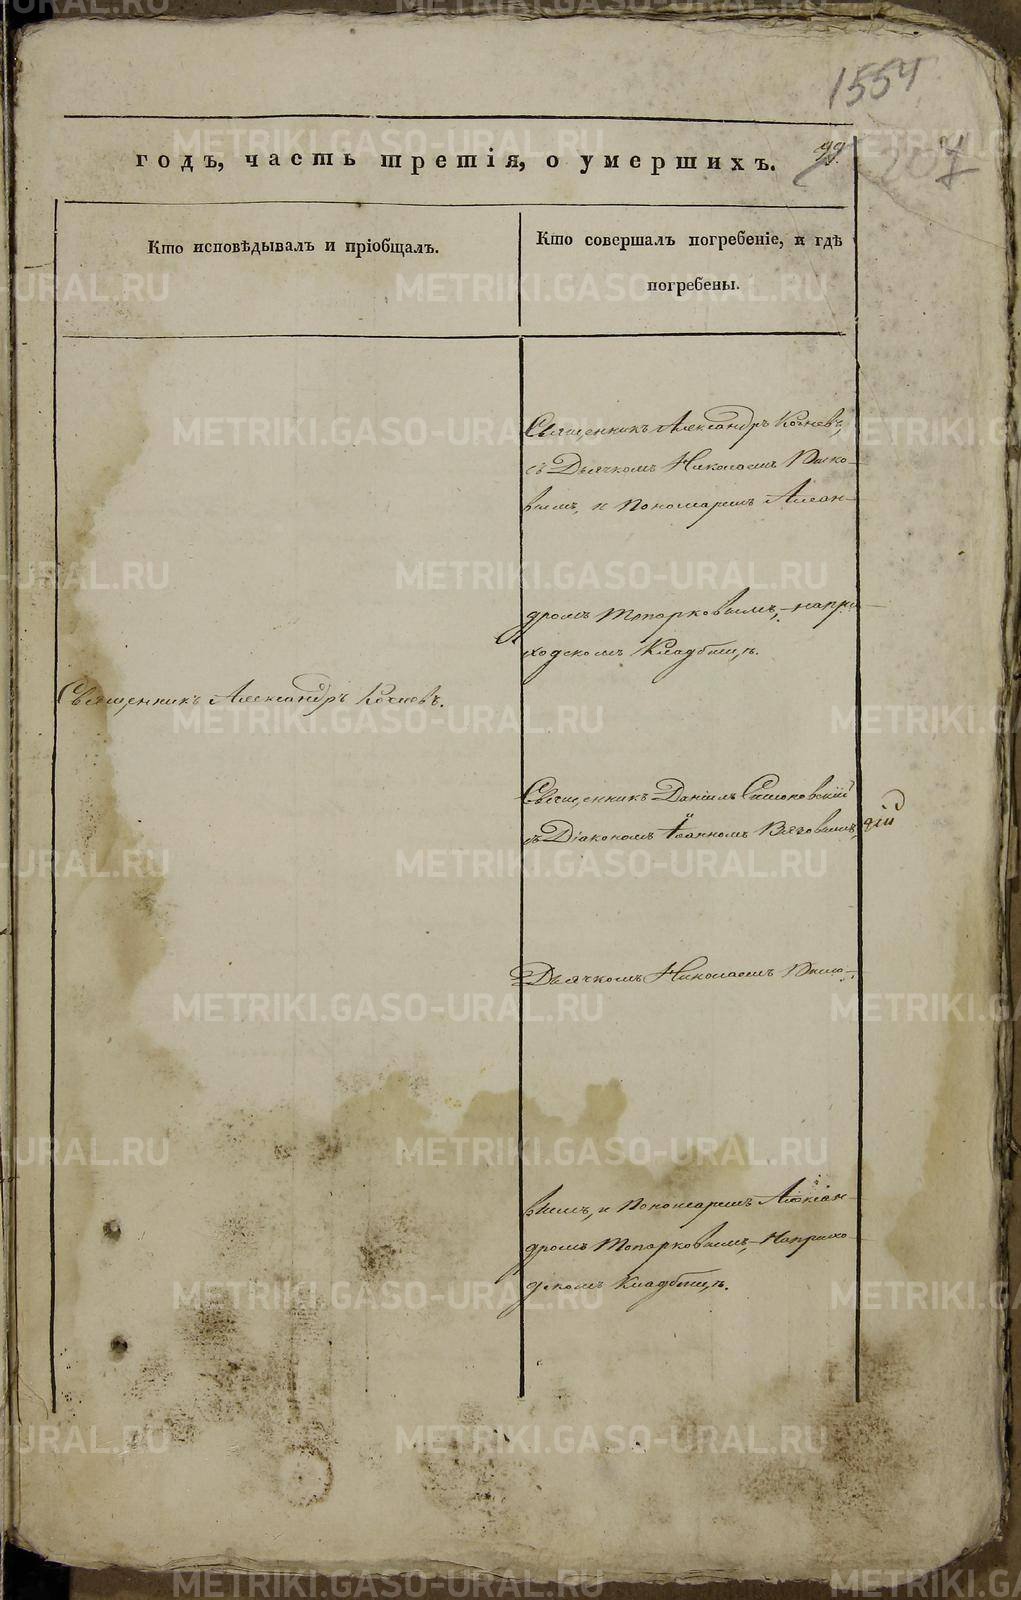 1554
годъ, часть третія, о умершихъ.
99.
207
Кто исповѣдывалъ и пріобщалъ.
Кто совершалъ погребеніе, и гдѣ
погребены.
Священникъ Александръ Кочневъ,
съ Дьячкомъ Николаемъ
вымъ, и Пономаремъ Алексан-
дромъ Топорковымъ, на при-
ходскомъ Кладбищѣ.
Священникъ Александръ Кочневъ.
Священникъ Даніилъ
съ Діакономъ Іоанномъ
Дьячкомъ Николаемъ
вымъ, и Пономаремъ Алексан-
дромъ Топорковымъ, на прихо-
дскомъ Кладбищѣ.
METRIKI.GASO-URAL.RU